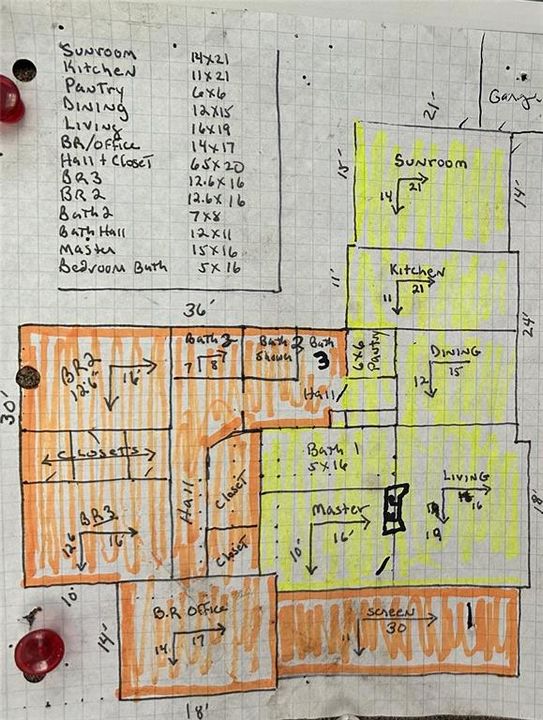 Sunroom 14x21
Kitchen 11x21
Pantry 6x6
Dining 12x15
Living 16x19
BR/Office 14x17
Hall + Closet 65x20
BR3 12.6x16
BR2 12.6x16
Bath 2 7x8
Bath Hall 12x11
Master 15x16
Bedroom Bath 5x16
21'
15'
Sunroom
21
14
14'
Kitchen
21
11
11'
24'
36'
30'
BR2
12.6
16'
Bath 2
7 8
Bath
Shown
Bath
3
Hall
6x6
Pantry
Dining
15
12
Closets
Bath 1
5x16
Living
16
19
18'
Hall
Closet
Closet
BR3
12.6
16'
Master
16'
10'
10'
B.R Office
17
14
14'
18'
Screen
30
11